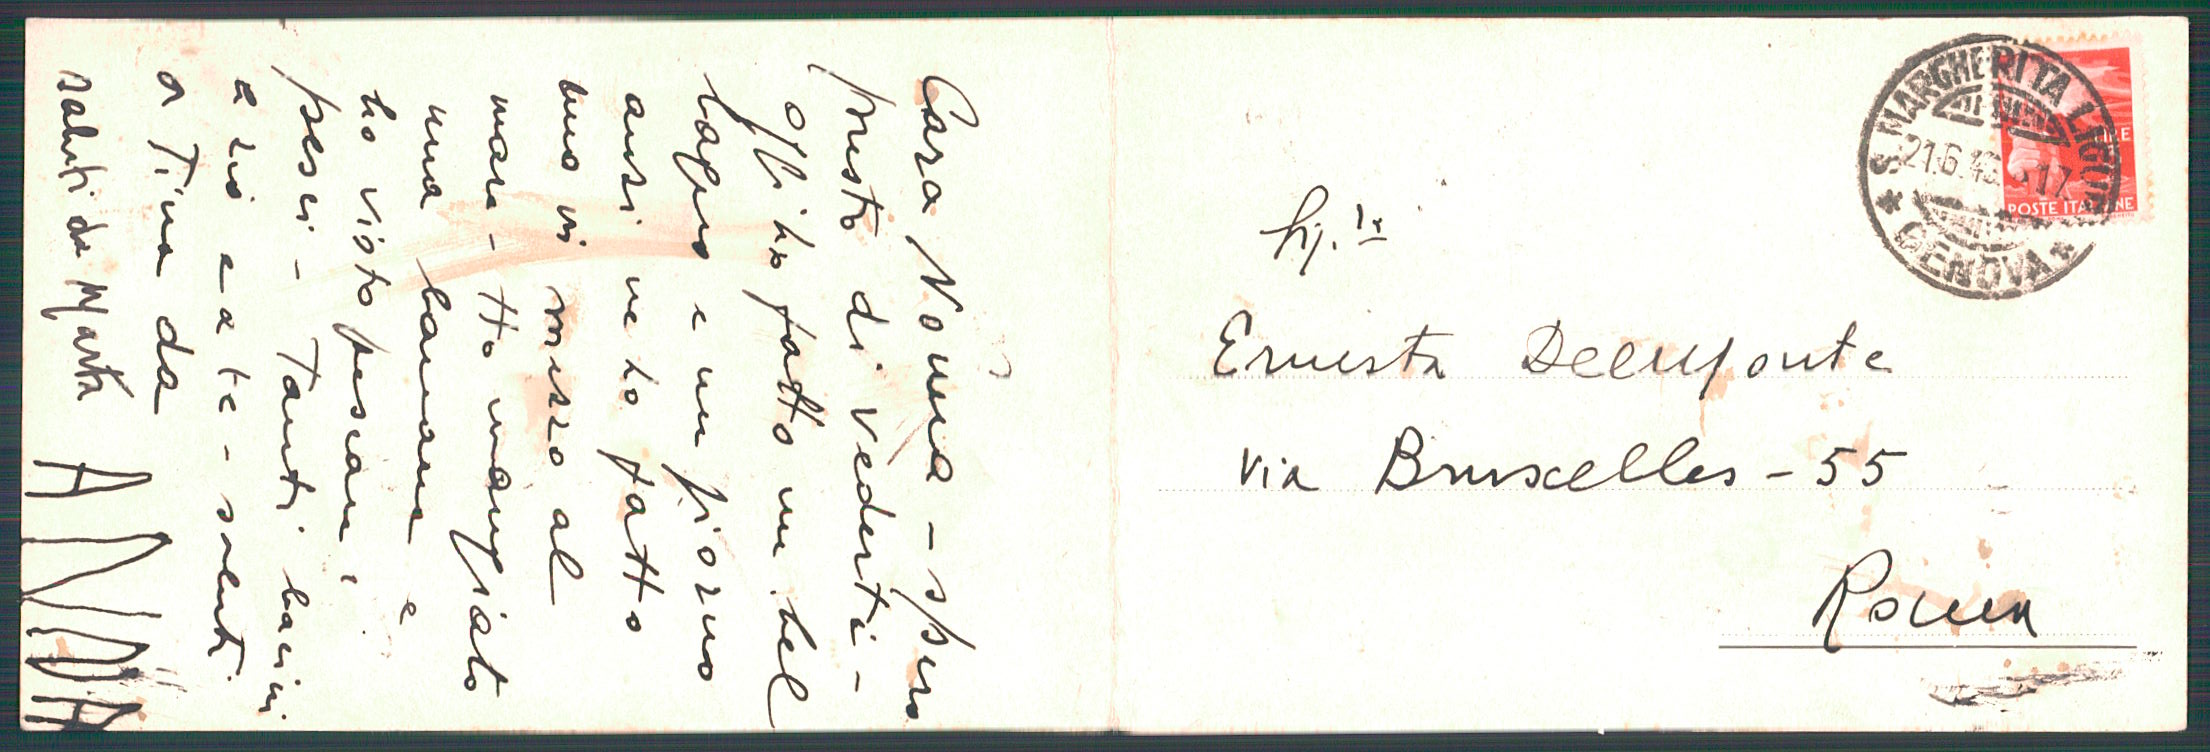 Cara Nonna - spero
presto di vederti -
oggi ho fatto un bel
bagno e un giorno
anzi ne ho fatto
uno in mezzo al
mare - Ho mangiato
una banana e
ho visto pescare i
pesci - Tanti bacini
a zio e a te - saluti
a Tina da
ANNA
saluti da Marta
S. MARGHERITA LIGURE
21.6.46. 17
GENOVA
LIRE
POSTE ITALIANE
Ernesta
via Bruxelles - 55
Roma